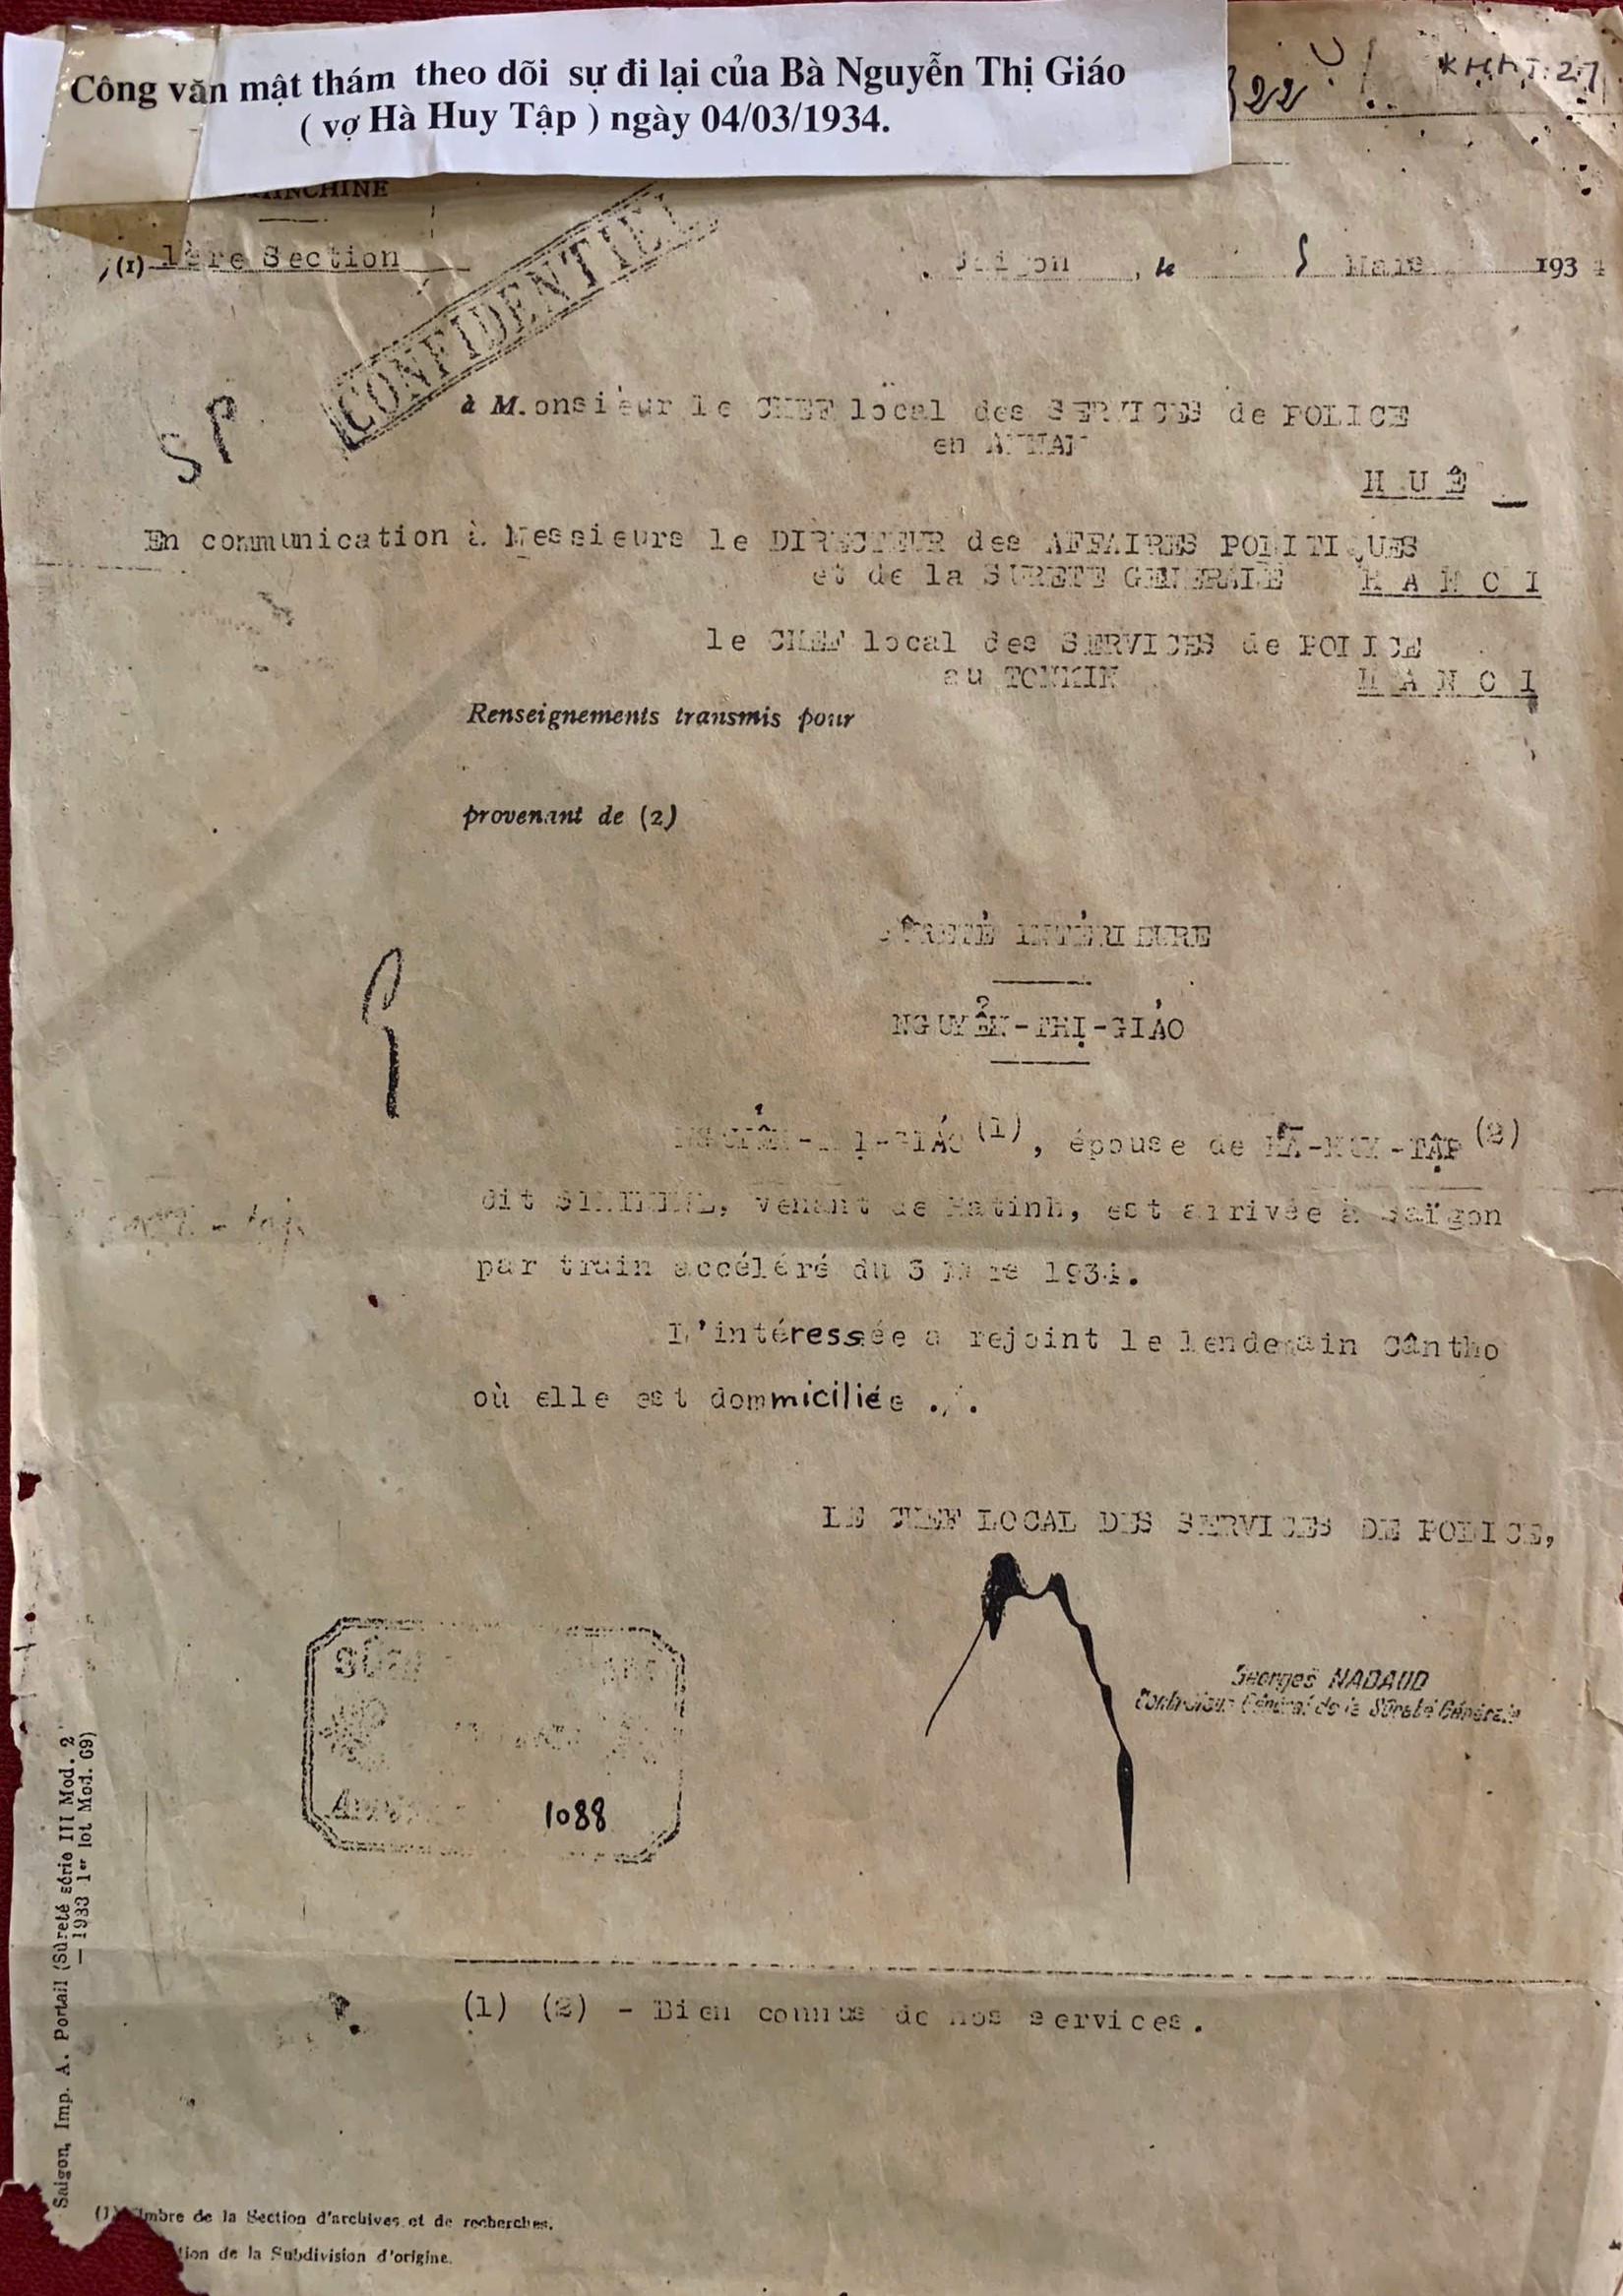 Công văn mật thám theo dõi sự đi lại của Bà Nguyễn Thị Giáo
( vợ Hà Huy Tập ) ngày 04/03/1934.
22
KHHT:27
(1) 1ère Section
CONFIDENTIEL
Saigon, le 5 Mars 1934
SP
à M.onsieur le CHEF local des SERVICES de POLICE
en ANNAM
H U Ê
En communication à Messieurs le DIRECTEUR des AFFAIRES POLITIQUES
et de la SURETE GENERALE H A N O I
le CHEF local des SERVICES de POLICE
au TONKIN H A N O I
Renseignements transmis pour
provenant de (2)
SÛRETÉ INTÉRIEURE
NGUYỄN-THỊ-GIÁO
NGUYỄN-THỊ-GIÁO (1), épouse de HÀ-HUY-TẬP (2)
dit venant de Hatinh, est arrivée à Saïgon
par train accéléré du 3 Mars 1934.
L'intéressée a rejoint le lendemain Cântho
où elle est dommiciliée ./.
LE CHEF LOCAL DES SERVICES DE POLICE,
Georges NADAUD
Contrôleur Général de la Sûreté Générale
1088
(1) (2) - Bien connus de nos services.
Saigon, Imp. A. Portail (Sûreté série III Mod. 2
— 1933 1er lot Mod. 69)
(1) Timbre de la Section d'archives et de recherches.
de la Subdivision d'origine.